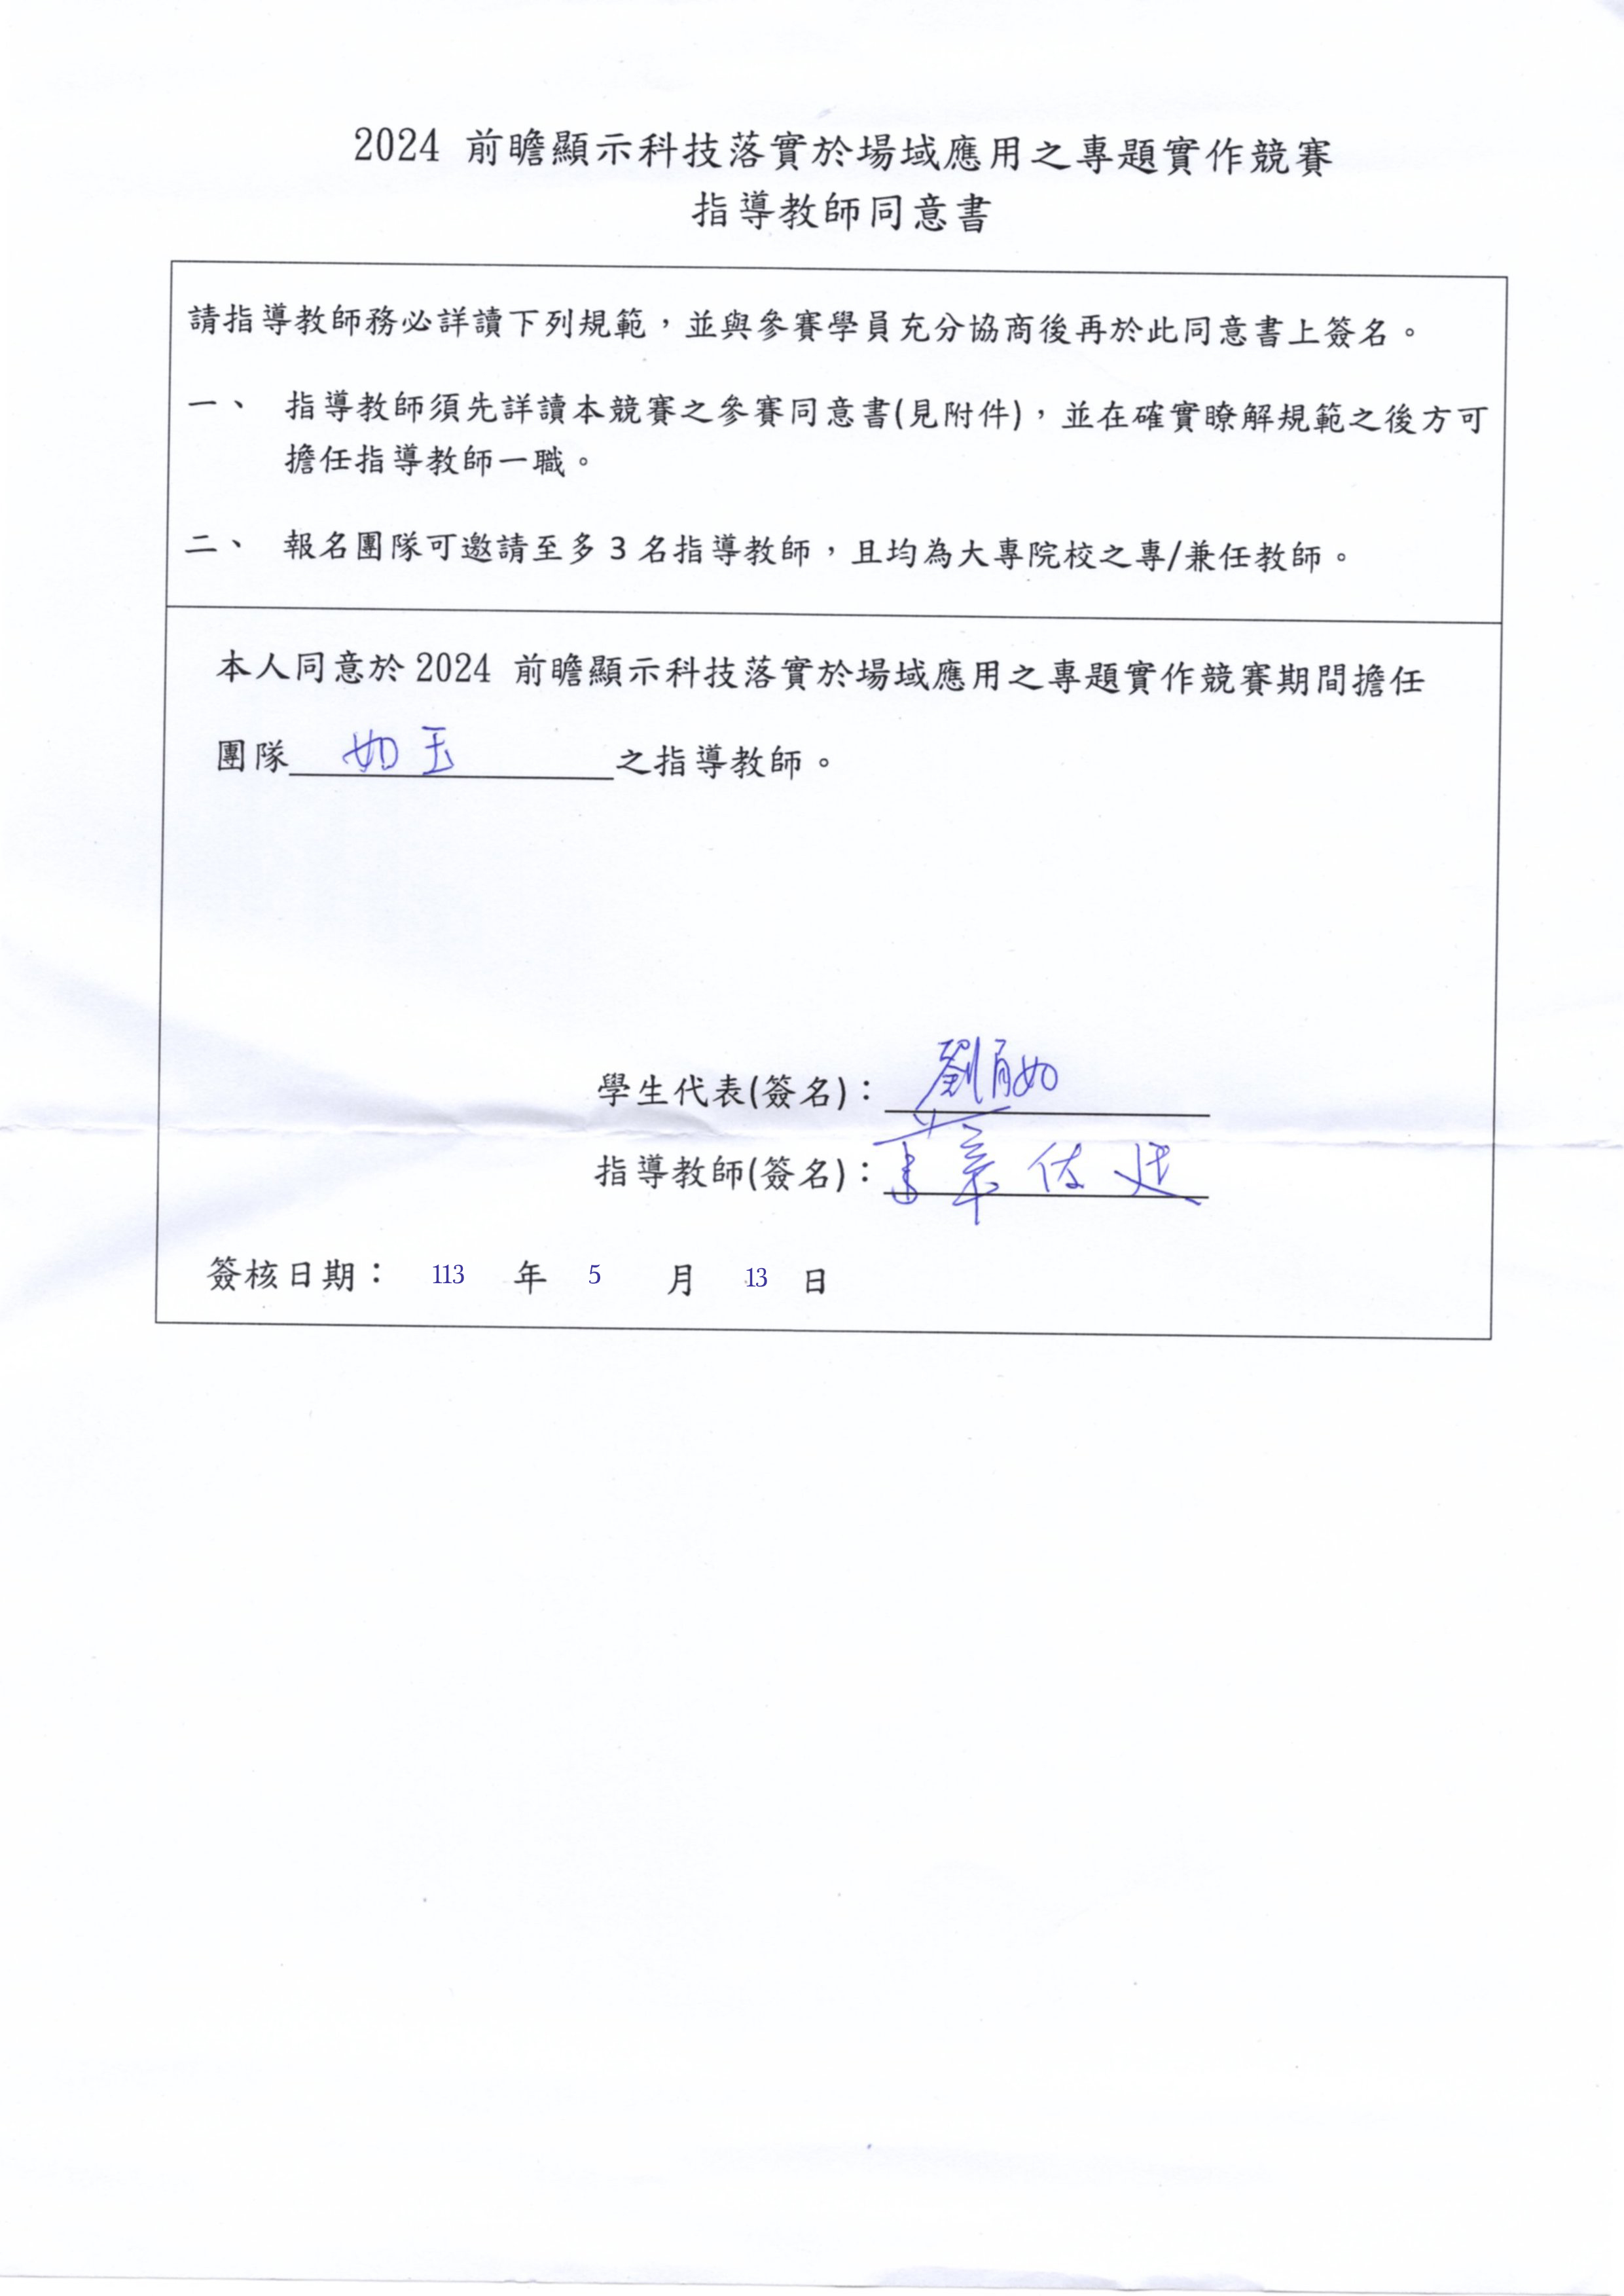 2024 前瞻顯示科技落實於場域應用之專題實作競賽
指導教師同意書
請指導教師務必詳讀下列規範，並與參賽學員充分協商後再於此同意書上簽名。
一、 指導教師須先詳讀本競賽之參賽同意書(見附件)，並在確實瞭解規範之後方可
擔任指導教師一職。
二、 報名團隊可邀請至多 3 名指導教師，且均為大專院校之專/兼任教師。
本人同意於 2024 前瞻顯示科技落實於場域應用之專題實作競賽期間擔任
團隊 如玉 之指導教師。
學生代表(簽名)： 劉 如
指導教師(簽名)：
簽核日期： 113 年 5 月 13 日